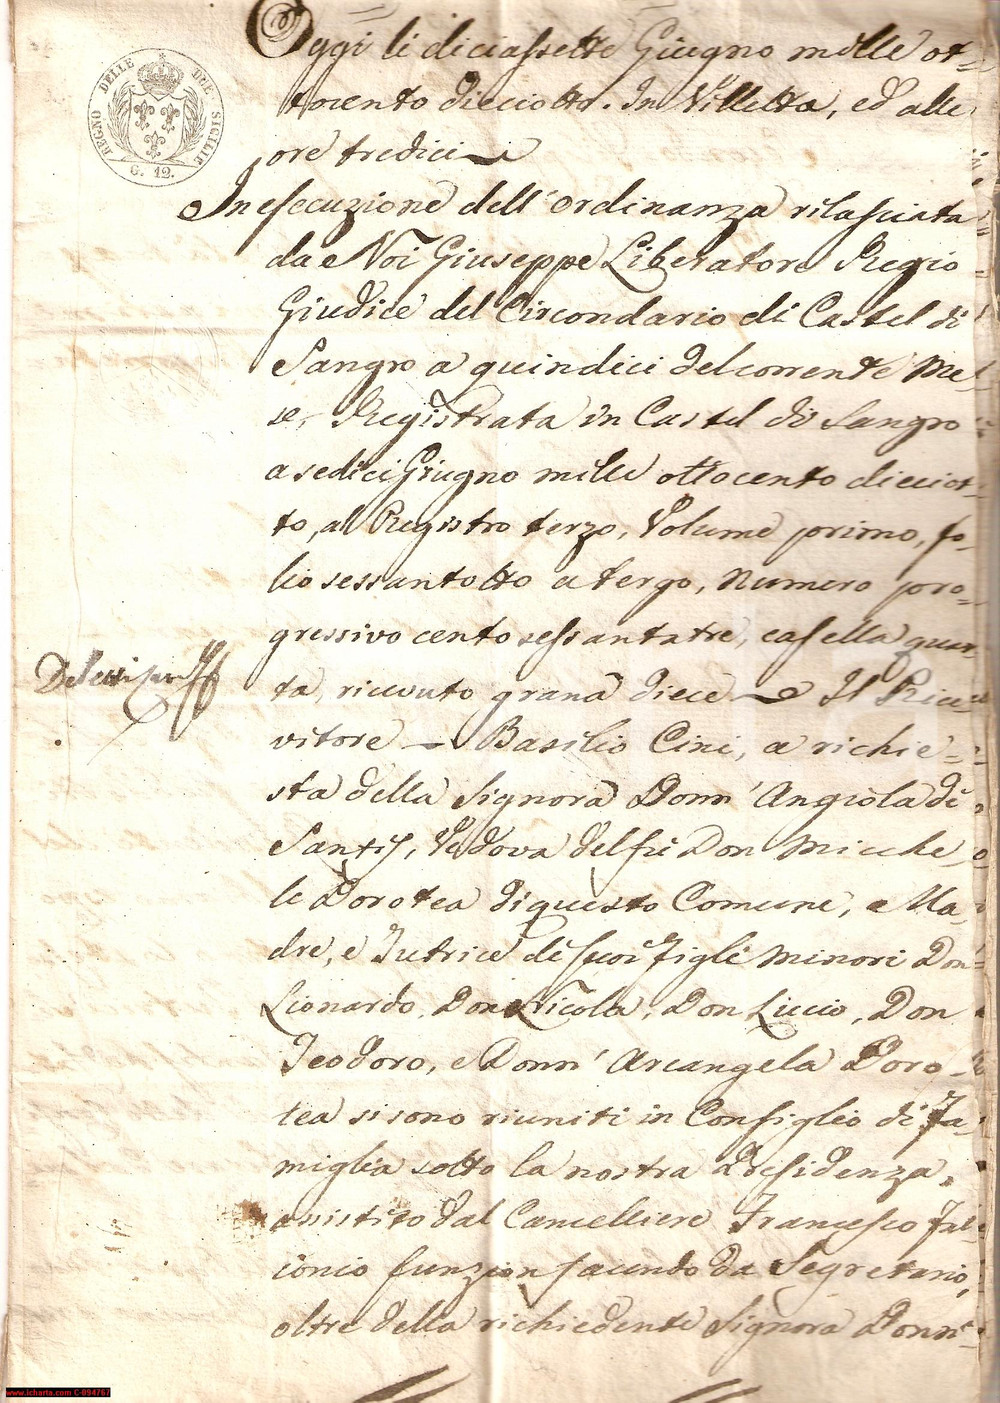 REGNO DELLE DUE SICILIE
G. 12.
Oggi li diciassette Giugno mille ot=
tocento dieciotto. In Villetta, ed alle
ore tredici
In esecuzione dell'ordinanza rilasciata
da Noi Giuseppe Liberatore Regio
Giudice del Circondario di Castel di
Sangro a quindici del corrente Me=
se, Registrata in Castel di Sangro
a sedici Giugno mille ottocento dieciot=
to, al Registro terzo, Volume primo, fo=
lio sessantotto a tergo, Numero pro=
gressivo cento sessantatre, casella quar=
ta, ricevuto grana diece — Il Rice=
vitore — Basilio Cini, a richie=
sta della Signora Donn' Angiola de
Santis, Vedova del fù Don Micche
le Dorotea di questo Comune, e Ma=
dre, e Tutrice de' suoi figli minori Don
Lionardo, Don Nicola, Don Liccio, Don
Teodoro, e Donn' Arcangela Doro=
tea si sono riuniti in Consiglio di Fa=
miglia sotto la nostra Presidenza,
assistito dal Cancelliere Francesco Fal=
conio funzion facendo da Segretario,
oltre della richiedente Signora Donn'
www.icharta.com C-094767